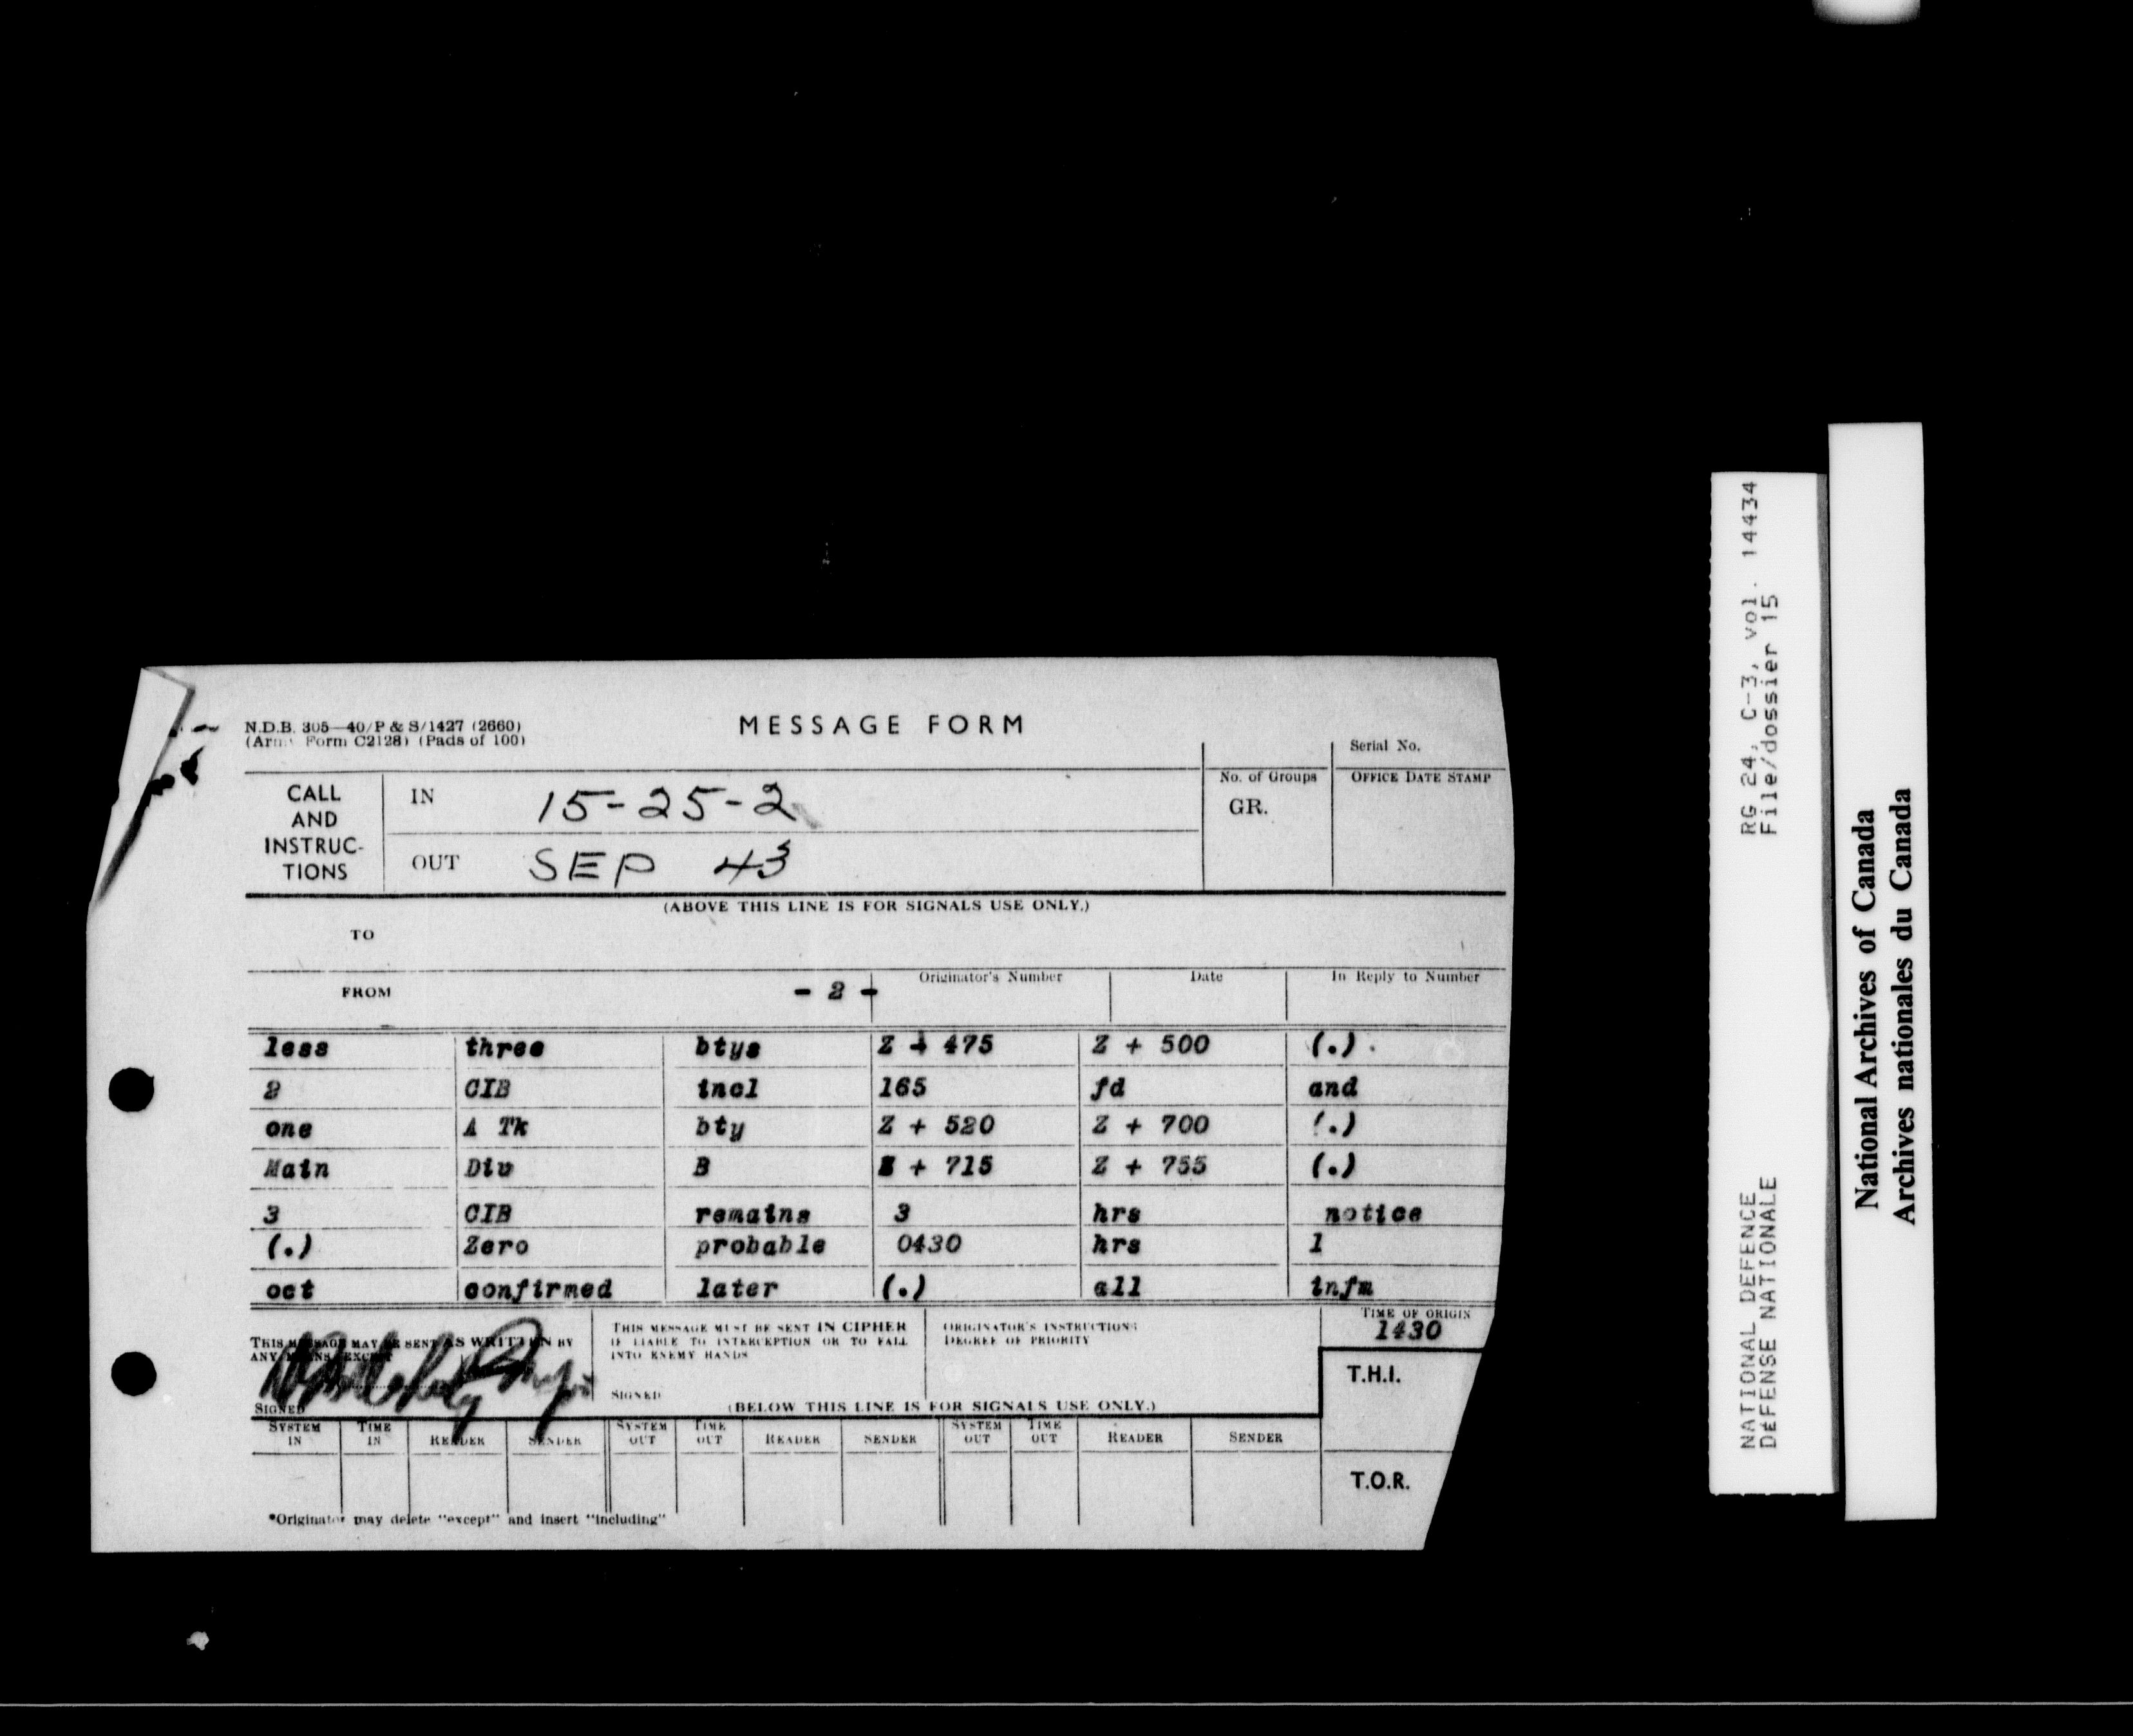 N.D.B. 305—40/P & S/1427 (2660)
(Army Form C2128) (Pads of 100)
MESSAGE FORM
Serial No.
CALL AND INSTRUC-TIONS
IN 15-25-2
No. of Groups
GR.
OFFICE DATE STAMP
OUT SEP 43
(ABOVE THIS LINE IS FOR SIGNALS USE ONLY.)
TO
FROM - 2 - Originator's Number Date In Reply to Number
less three btys Z + 475 Z + 500 (.)
2 CIB incl 165 fd and
one A Tk bty Z + 520 Z + 700 (.)
Main Div B Z + 715 Z + 755 (.)
3 CIB remains 3 hrs notice
(.) Zero probable 0430 hrs 1
oct confirmed later (.) all infm
THIS MESSAGE MAY BE SENT AS WRITTEN BY
ANY MEANS EXCEPT
SIGNED
THIS MESSAGE MUST BE SENT IN CIPHER
IF LIABLE TO INTERCEPTION OR TO FALL
INTO ENEMY HANDS
SIGNED
ORIGINATOR'S INSTRUCTIONS
DEGREE OF PRIORITY
TIME OF ORIGIN
1430
T.H.I.
(BELOW THIS LINE IS FOR SIGNALS USE ONLY.)
SYSTEM IN TIME IN READER SENDER SYSTEM OUT TIME OUT READER SENDER SYSTEM OUT TIME OUT READER SENDER
T.O.R.
*Originator may delete "except" and insert "including"
NATIONAL DEFENCE RG 24, C-3, vol. 14434
DÉFENSE NATIONALE File/dossier 15
National Archives of Canada
Archives nationales du Canada